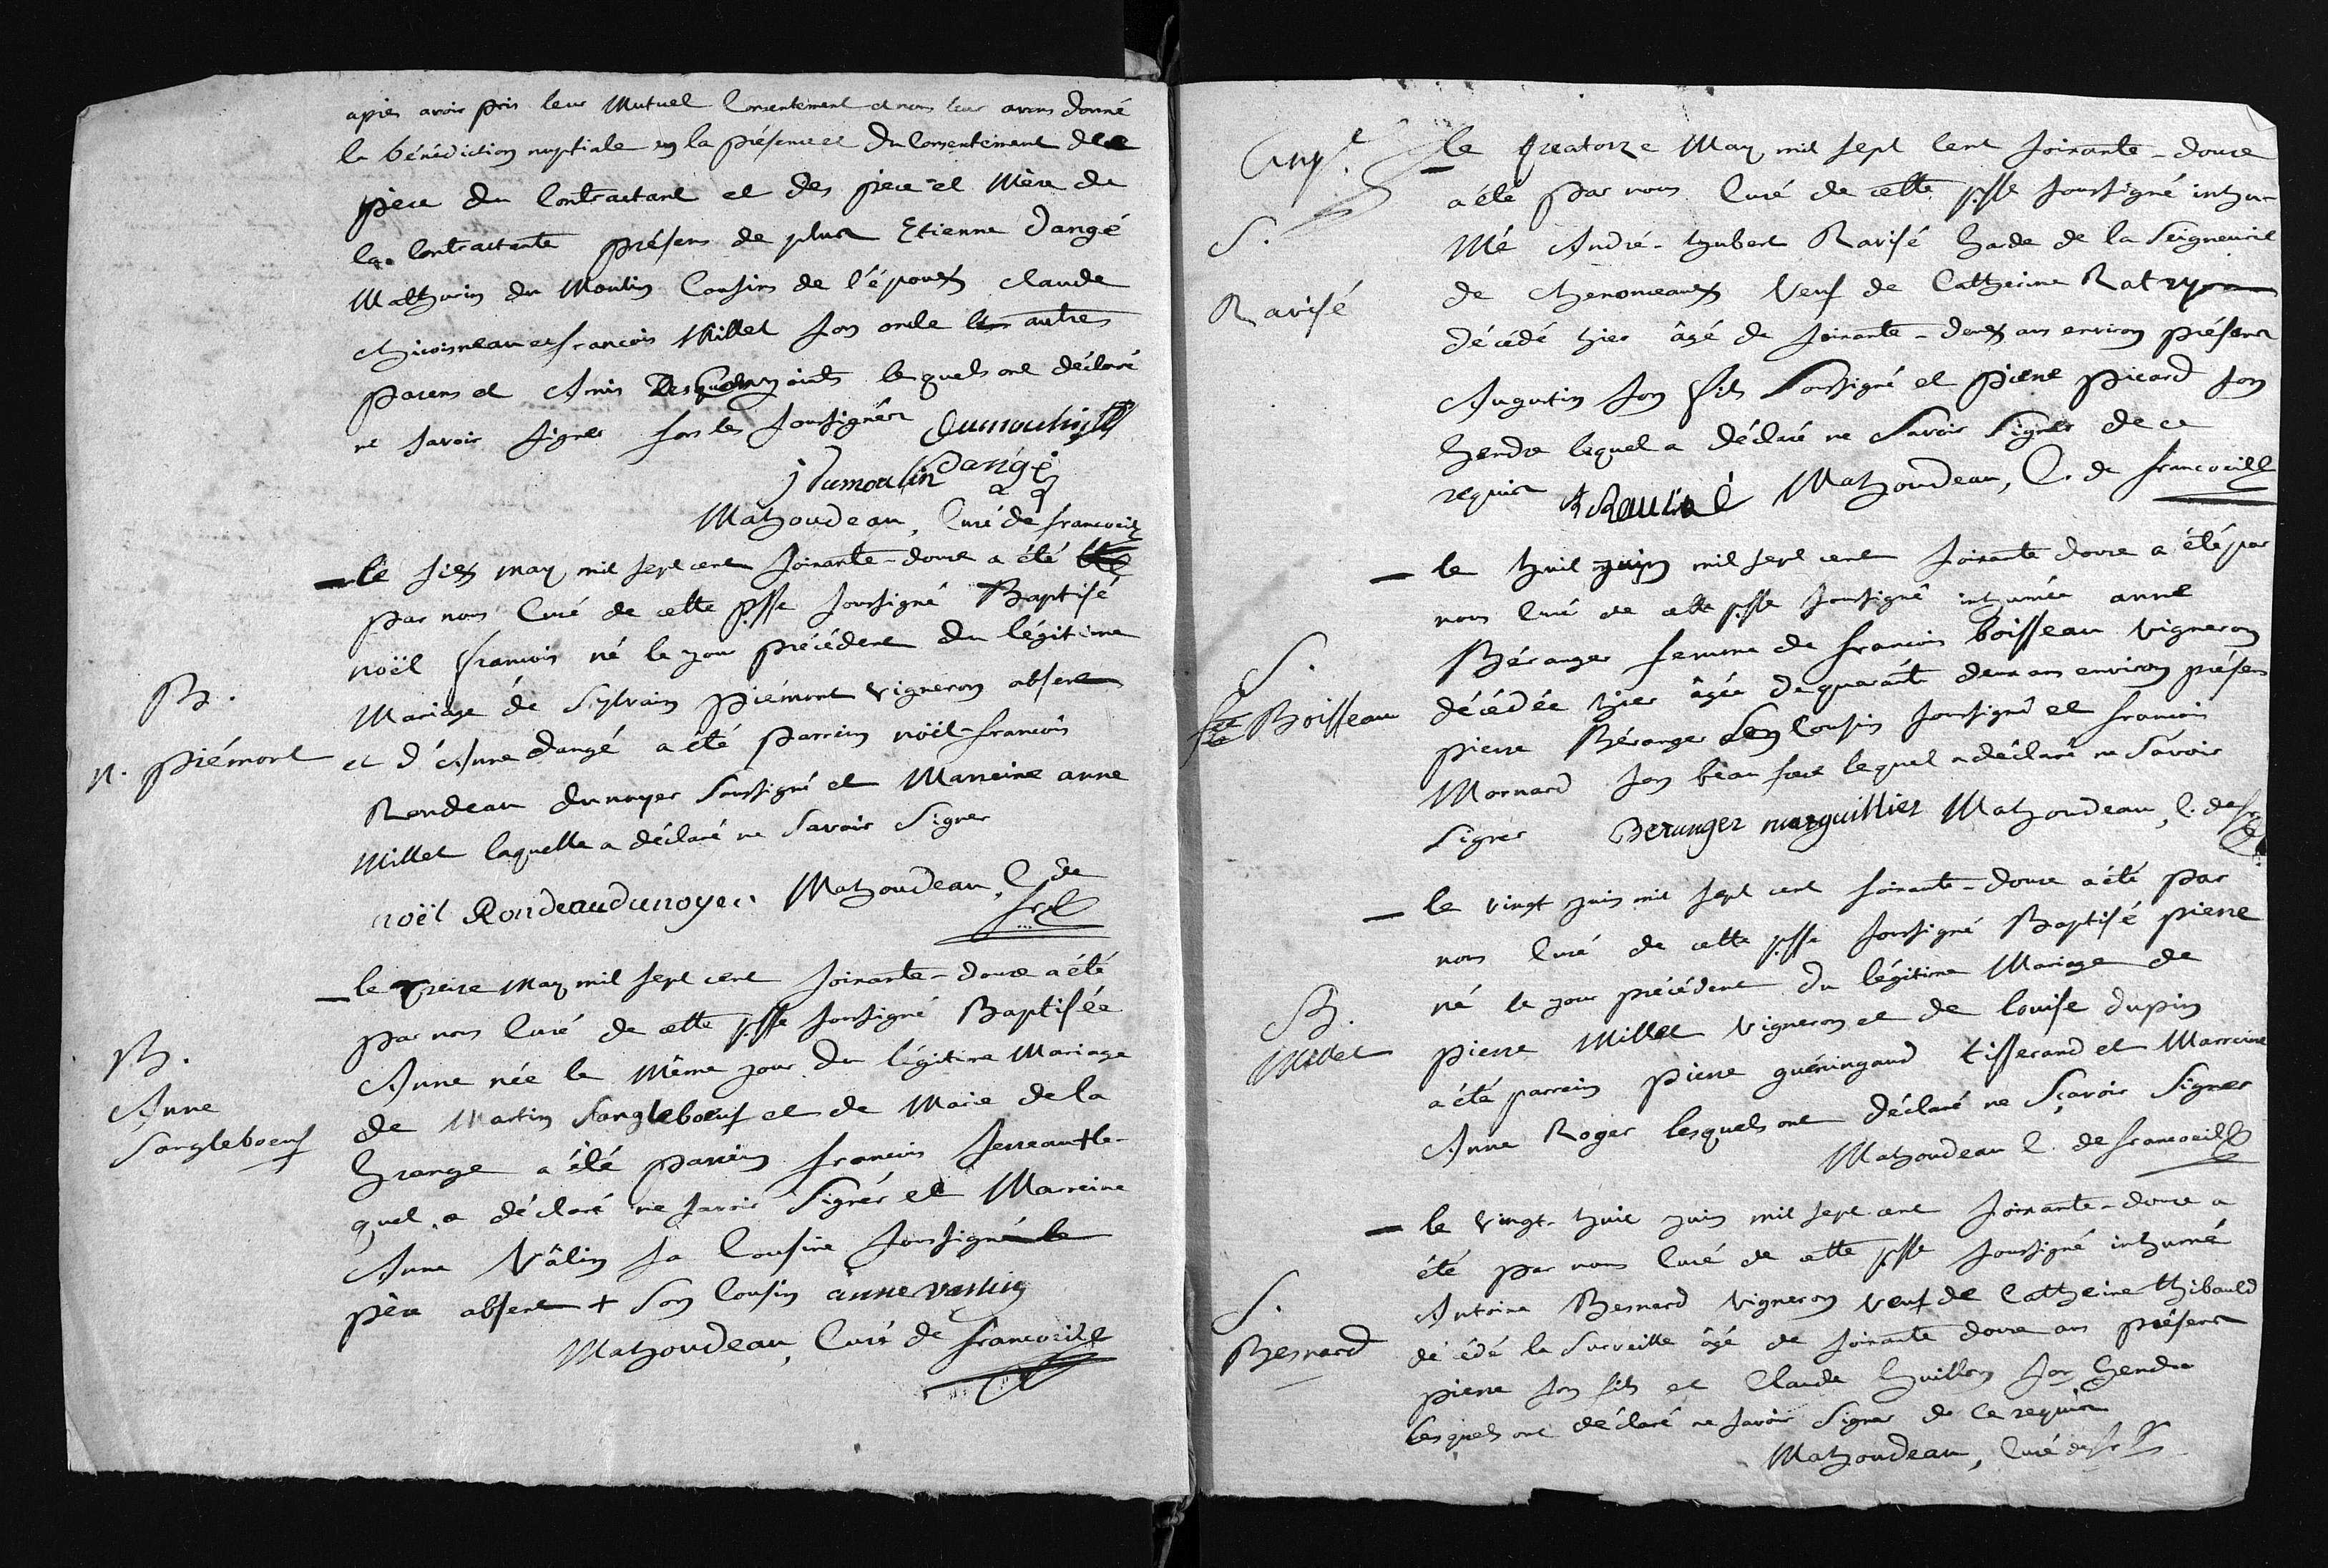 après avoir pris leur Mutuel Consentement et nous leur avons donné
la bénédiction nuptiale en la présence et du Consentement de la
père du Contractant et des père et Mère de
la Contractante présens de plus Etienne dangé
Mathurin du Moulin Cousins de l'époux claude
Chicoisneau et françois Millet son oncle et autres
parens et Amis lesquels ont déclaré
ne savoir signer fors les soussignés Dumoulin
J Dumoulin Dangé
Mahoudeau, Curé de francoeil
le six may mil sept cent soixante-douze a été
par nous Curé de cette psse soussigné Baptisé
noël françois né le jour précédent du légitime
Mariage de Sylvain piémont vigneron absent
B.
n. piémont
et d'Anne dangé a été parrein noël-françois
Rondeau dunoyer soussigné et Marreine anne
Millet laquelle a déclaré ne savoir signer
noël Rondeaudunoyer Mahoudeau, C. de
fr
le treize may mil sept cent soixante-douze a été
par nous Curé de cette psse soussigné Baptisée
B.
Anne
Sangleboeuf
Anne née le même jour du légitime Mariage
de Martin Sangleboeuf et de Marie de la
Grange a été parrein françois Serreau+le-
quel a déclaré ne savoir signer et Marreine
Anne Vâlin sa Cousine soussignée le
père absent + son Cousin anne vallin
Mahoudeau, Curé de francoeil
le quatorze May mil sept cent soixante-douze
a été par nous Curé de cette psse soussigné inhu-
S.
Ravisé
mé André-hubert Ravisé Garde de la Seigneurie
de chenonceaux Veuf de Catherine
décédé hier âgé de soixante-deux ans environ présens
Augustin son fils soussigné et pierre picard son
Gendre lequel a déclaré ne savoir signer de ce
requis A Ravisé Mahoudeau, C. de francoeil
le huit juin mil sept cent soixante douze a été par
nous Curé de cette psse soussigné inhumée anne
S.
fe Boisseau
Béranger femme de françois boisseau vigneron
décédée hier âgée de quarante deux ans environ présens
pierre Béranger son Cousin soussigné et françois
Mornard son beau frere lequel a déclaré ne savoir
signer Beranger marguillier Mahoudeau, C. de fr
le vingt juin mil sept cent soixante-douze a été par
nous Curé de cette psse soussigné Baptisé pierre
B.
Millet
né le jour précédent du légitime Mariage de
pierre Millet Vigneron et de louise dupin
a été parrein pierre guéningaud tisserand et Marreine
Anne Roger lesquels ont déclaré ne sçavoir signer
Mahoudeau C. de francoeil
le vingt-huit juin mil sept cent soixante-douze a
été par nous Curé de cette psse soussigné inhumé
S.
Besnard
Antoine Besnard vigneron veuf de Catherine thibauld
décédé la surveille âgé de soixante douze ans présens
pierre son fils et Claude Guillon son Gendre
lesquels ont déclaré ne savoir signer de ce requis
Mahoudeau, Curé de fr